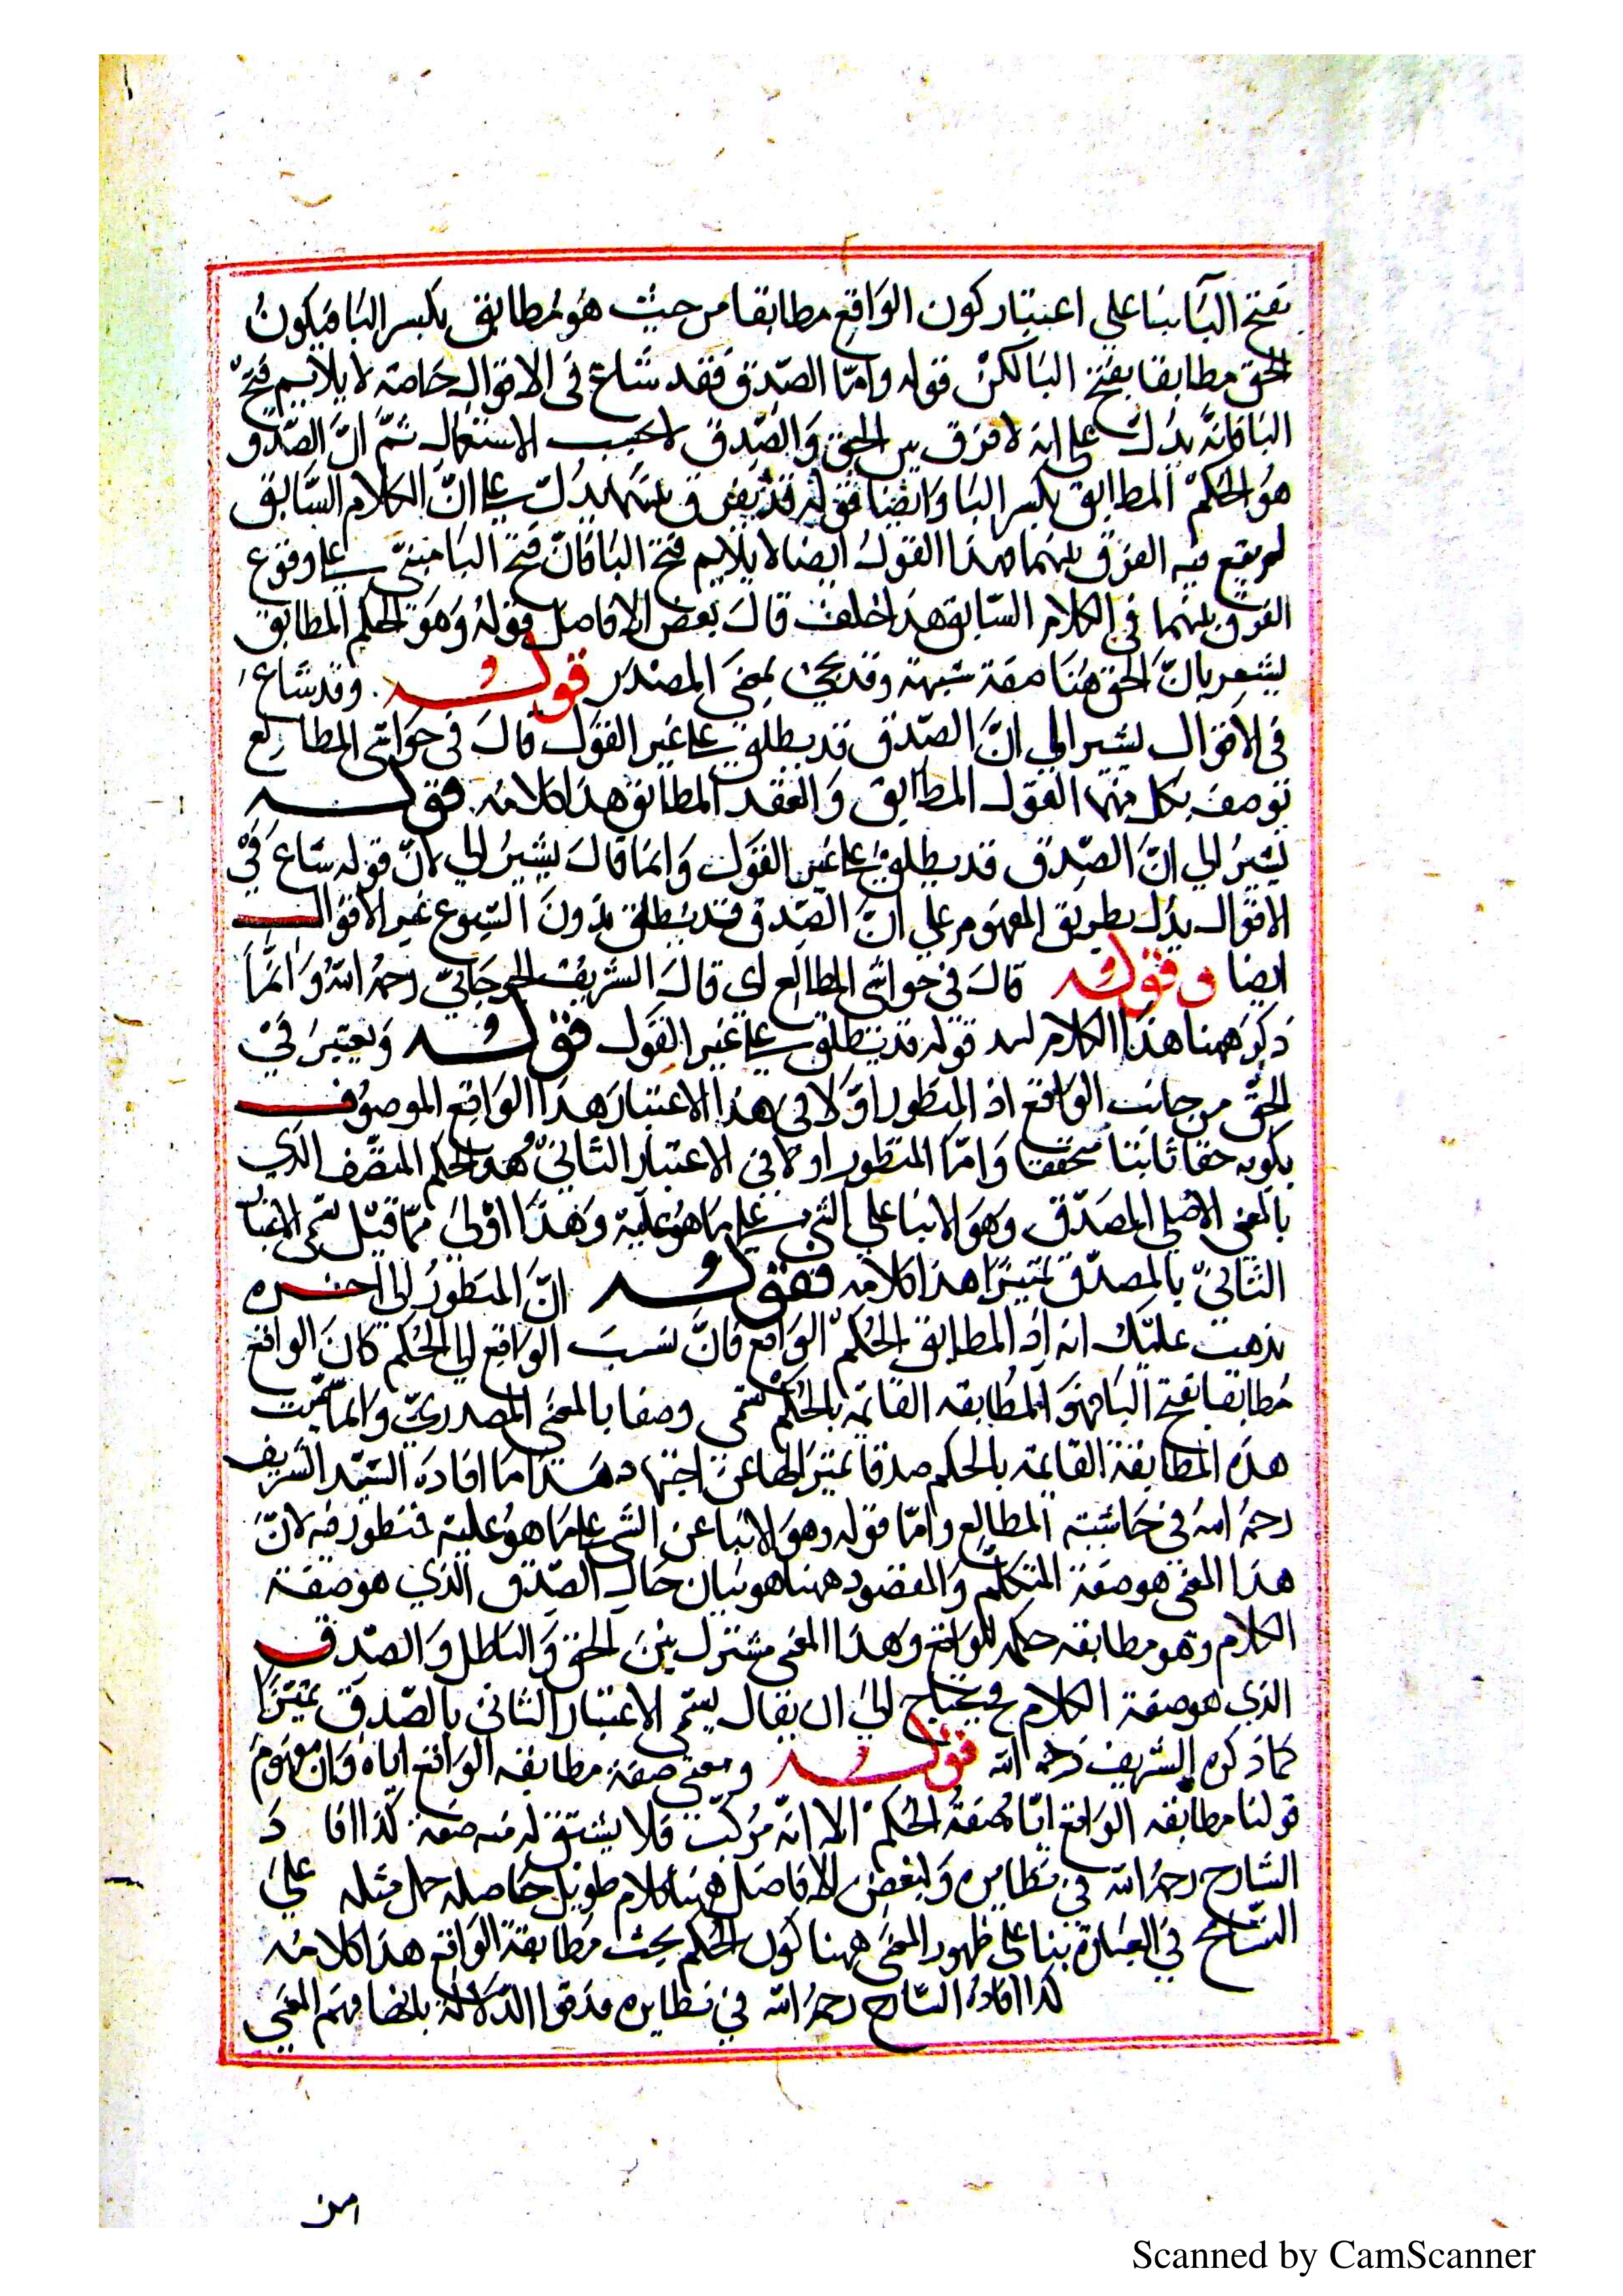 بفتح البآ بناعلى اعتبار كون الواقع مطابقا من حيث هو مطابق بكسر البا فيكون
الحق مطابقا بفتح البا لكن قوله وامّا الصّدق فقد شاع فى الاقوال خاصة لا يلايم فتح
البا فانّه يدلّ على انه لا فرق بين الحق والصّدق لاحسب الاستعمال ثمّ انّ الصّدق
هو الحكم المطابق بكسر البا وايضا قوله قد يفرق بينهما يدلّ على انّ الكلام السّابق
لم يقع فيه الفرق بينهما فهذا القول ايضا لا يلايم فتح البا فانّ فتح البا مبنىّ على وقوع
الفرق بينهما فى الكلام السّابق هذا خلف قال بعض الافاضل قوله وهو الحكم المطابق
يشعر بانّ الحق هنا صفة شبهة وقد يجئ بمعنى المصدر قوله وقد شاع
فى الاقوال يشير الى انّ الصّدق قد يطلق على غير القول قال فى حواشى المطالع
توصف بكل منهما القول المطابق والعقد المطابق هذا كلامه فقوله
يشير الى انّ الصّدق قد يطلق على غير القول وانما قال يشير الى لانّ قوله شاع فى
الاقوال يدل بطريق المفهوم على انّ الصّدق قد يطلق بدون الشيوع غير الاقوال
ايضا وقوله قال فى حواشى المطالع اى قال الشريف الجرجانىّ رحمه الله وانّما
ذكر ههنا هذا الكلام قوله قد يطلق على غير القول فقوله ويعتبر فى
الحقّ من جانب الواقع اذ المنظور اوّلا فى هذا الاعتبار هذا الواقع الموصوف
بكونه حقا ثابتا متحققا وامّا المنظور اولا فى الاعتبار الثانىّ هو الحكم المتّصف الذي
بالمعنى الاصلى المصدّق وهو الانبا على الشى على ما هو عليه وهذا اولى ممّا قيل سمى الاعتبار
الثانىّ بالمصدّق تميّزا هذا كلامه فقوله انّ المنظور الى اخره
يذهب عليك انه اذ المطابق الحكم الواقع فانّ نسب الواقع الى الحكم كان الواقع
مطابقا بفتح البا فهو المطابقه القائمة بالحكم سمى وصفا بالمعنى المصدرىّ وانما سمّيت
هذه المطابقة القائمة بالحكم صدقا تميّزا لها عن اختها هذا ما افاده السّيّد الشريف
رحمه الله فى حاشيته المطالع وامّا قوله وهو الانبا عن الشى على ما هو عليه فمنظور فيه لانّ
هذا المعنى هو صفة المتكلّم والمقصود ههنا هو بيان حال الصّدق الذي هو صفة
الكلام وهو مطابقه حكمه للواقع وهذا المعنى مشترك بين الحق والباطل والصّدق
الذي هو صفة الكلام فيحتاج الى ان يقال يسمّى الاعتبار الثانى بالصّدق تميّزا
كما ذكره الشريف رحمه الله قوله ومعنى صفة مطابقه الواقع اياه وان مفهوم
قولنا مطابقه الواقع ايّا صفة الحكم الا انّه مركّب فلا يشتق له منه صفة كذا افا د
الشارح رحمه الله فى نظايره ولبعض الافاضل ههنا كلام طويل حاصله حمل مثله على
التسامح فى العبارة بنا على ظهور المعنى ههنا كون الحكم بحيث مطابقة الواقع هذا كلامه
كذا افاده الشارح رحمه الله فى نظايره فذقوا الدّلالة بانضا فهم المعنى
امن
Scanned by CamScanner